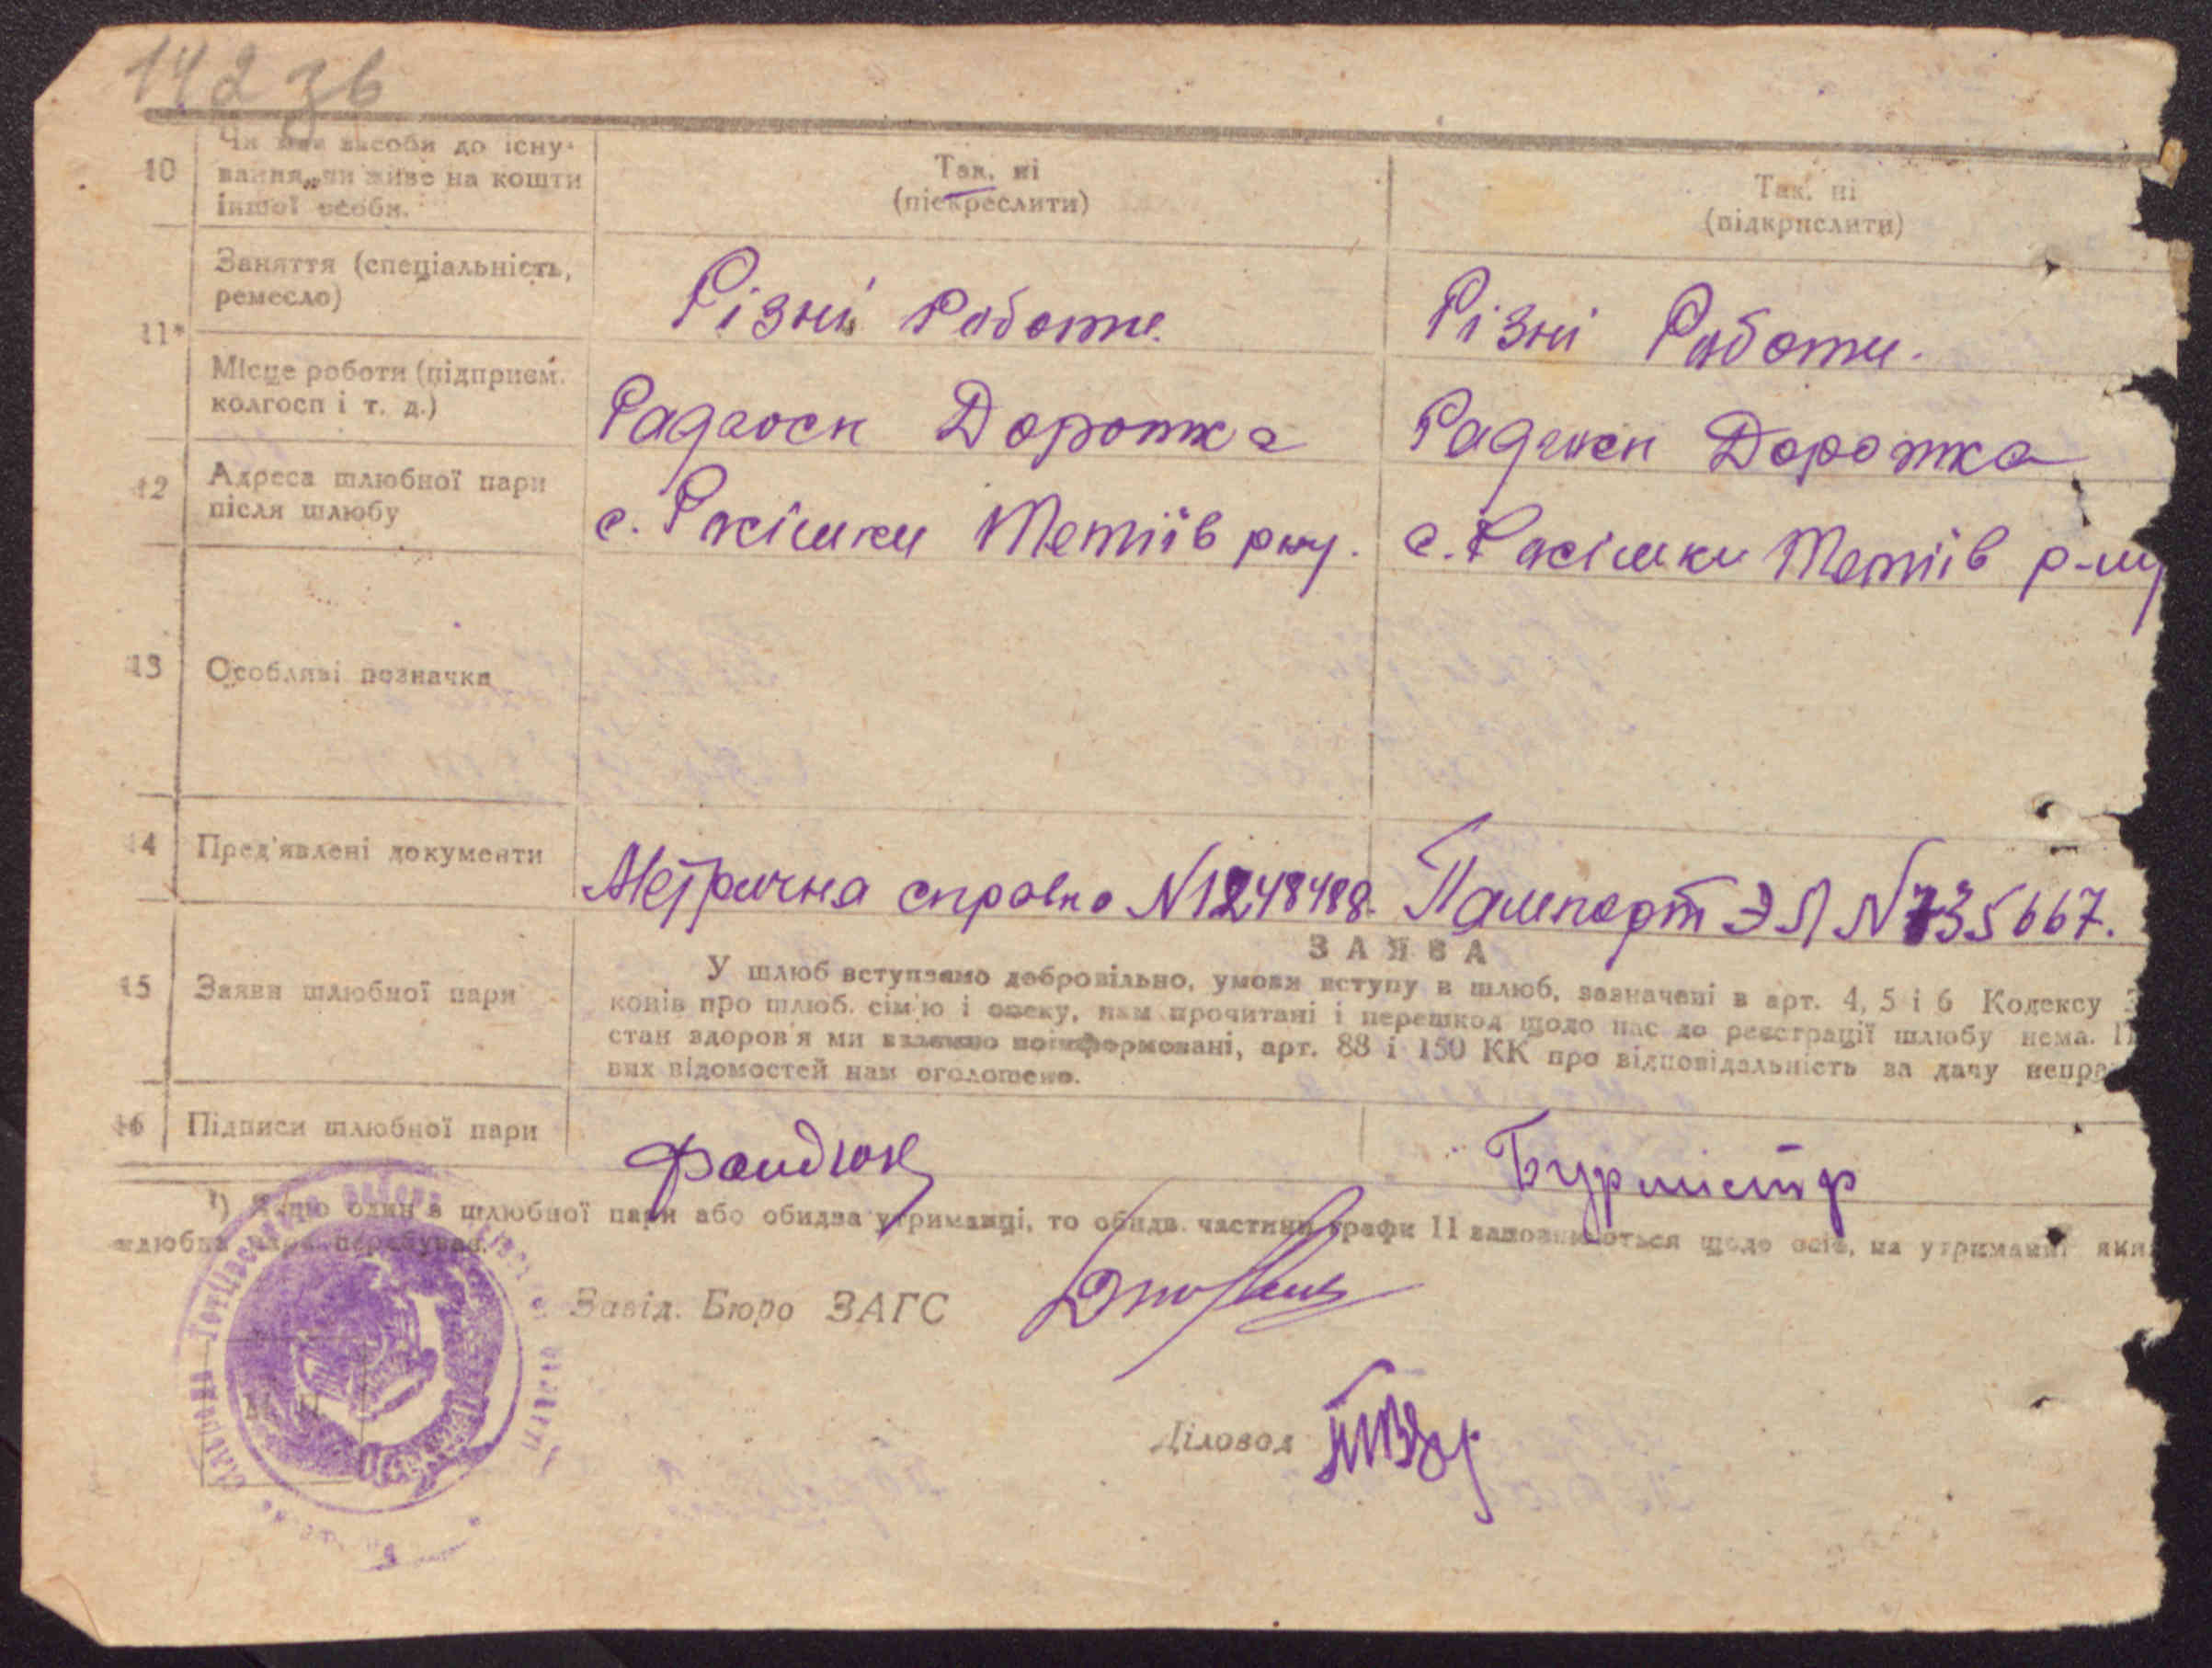 142 зв
10
Чи має засоби до існу-
вання, чи живе на кошти
іншої особи.
Так, ні
(піскреслити)
Так, ні
(підкрислити)
11*
Заняття (спеціальність,
ремесло)
Різні Роботи.
Різні Роботи.
Місце роботи (підприєм.
колгосп і т. д.)
Радгосп Доротка
Радгосп Доротка
12
Адреса шлюбної пари
після шлюбу
с. Росішки Тетіїв рну.
с. Росішки Тетіїв р-ну
13
Особливі позначки
14
Пред'явлені документи
Метрична справка №1248488.
Пашпорт ЭЛ №735667.
15
Заяви шлюбної пари
ЗАЯВА
У шлюб вступаємо добровільно, умови вступу в шлюб, зазначені в арт. 4, 5 і 6 Кодексу З
конів про шлюб, сім'ю і опеку, нам прочитані і перешкод щодо нас до реєстрації шлюбу нема. П
стан здоров'я ми взаємно поінформовані, арт. 88 і 150 КК про відповідальність за дачу непра
вих відомостей нам оголошено.
16
Підписи шлюбної пари
Фандюк
Бурмістр
¹) Якщо один з шлюбної пари або обидва утриманці, то обидв. частини графи 11 заповнюються щодо осіб, на утриманні яки
шлюбна пара перебуває.
Завід. Бюро ЗАГС
Діловод